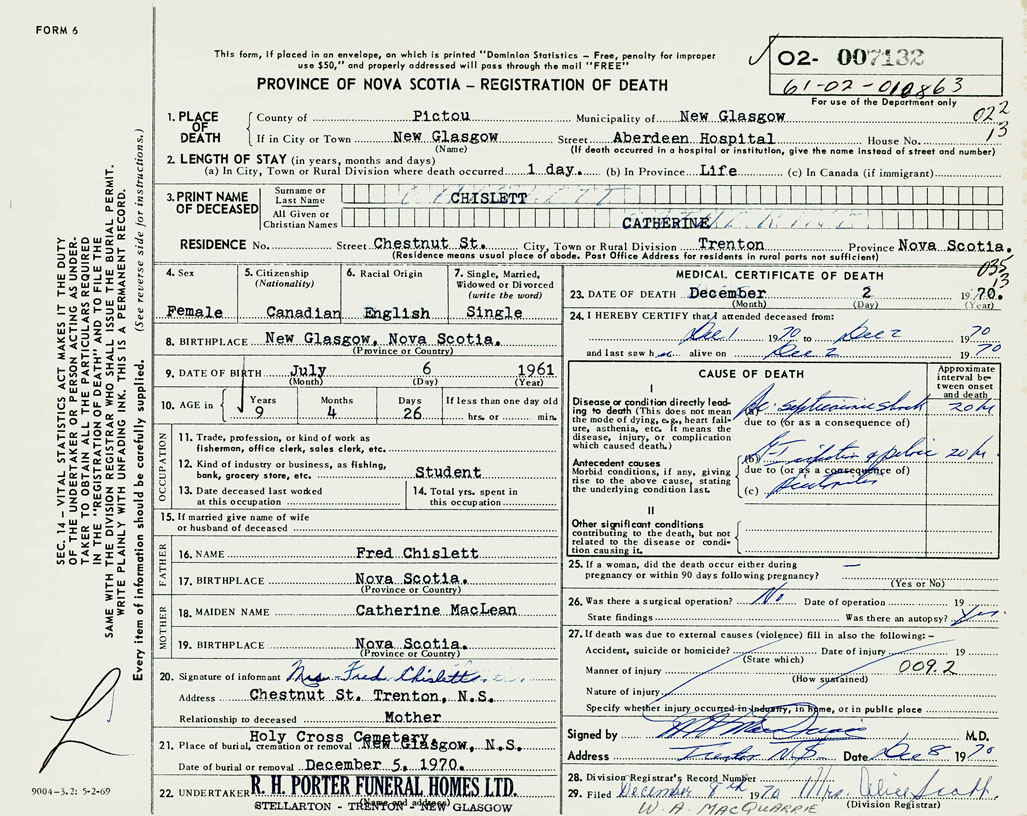 FORM 6
This form, if placed in an envelope, on which is printed "Dominion Statistics – Free, penalty for improper
use $50," and properly addressed will pass through the mail "FREE"
PROVINCE OF NOVA SCOTIA – REGISTRATION OF DEATH
02- 007132
61-02-010863
For use of the Department only
022
13
1. PLACE OF DEATH
County of Pictou Municipality of New Glasgow
If in City or Town New Glasgow Street Aberdeen Hospital House No.
(Name) (If death occurred in a hospital or institution, give the name instead of street and number)
2. LENGTH OF STAY (in years, months and days)
(a) In City, Town or Rural Division where death occurred 1 day. (b) In Province Life (c) In Canada (if immigrant)
3. PRINT NAME OF DECEASED
Surname or Last Name CHISLETT
All Given or Christian Names CATHERINE
RESIDENCE No. Street Chestnut St. City, Town or Rural Division Trenton Province Nova Scotia.
(Residence means usual place of abode. Post Office Address for residents in rural parts not sufficient)
035
13
4. Sex
Female
5. Citizenship (Nationality)
Canadian
6. Racial Origin
English
7. Single, Married, Widowed or Divorced (write the word)
Single
8. BIRTHPLACE New Glasgow, Nova Scotia.
(Province or Country)
9. DATE OF BIRTH July 6 1961
(Month) (Day) (Year)
10. AGE in Years Months Days If less than one day old
9 4 26 hrs. or min.
OCCUPATION
11. Trade, profession, or kind of work as
fisherman, office clerk, sales clerk, etc.
12. Kind of industry or business, as fishing,
bank, grocery store, etc. Student
13. Date deceased last worked
at this occupation
14. Total yrs. spent in
this occupation
15. If married give name of wife
or husband of deceased
FATHER
16. NAME Fred Chislett
17. BIRTHPLACE Nova Scotia.
(Province or Country)
MOTHER
18. MAIDEN NAME Catherine MacLean
19. BIRTHPLACE Nova Scotia.
(Province or Country)
20. Signature of informant Mrs. Fred Chislett
Address Chestnut St. Trenton, N.S.
Relationship to deceased Mother
Holy Cross Cemetery,
21. Place of burial, cremation or removal New Glasgow, N.S.
Date of burial or removal December 5, 1970.
22. UNDERTAKER R. H. PORTER FUNERAL HOMES LTD.
(Name and address)
STELLARTON - TRENTON - NEW GLASGOW
MEDICAL CERTIFICATE OF DEATH
23. DATE OF DEATH December 2 1970.
(Month) (Day) (Year)
24. I HEREBY CERTIFY that I attended deceased from:
Dec 1 1970 to Dec 2 1970
and last saw h alive on Dec 2 1970
CAUSE OF DEATH
Approximate interval between onset and death
I
Disease or condition directly leading to death (This does not mean
the mode of dying, e.g., heart failure, asthenia, etc. It means the
disease, injury, or complication
which caused death.)
(a) septicemic shock 20 hr
due to (or as a consequence of)
Antecedent causes
Morbid conditions, if any, giving
rise to the above cause, stating
the underlying condition last.
(b) 20 hr
due to (or as a consequence of)
(c)
II
Other significant conditions
contributing to the death, but not
related to the disease or condition causing it.
25. If a woman, did the death occur either during
pregnancy or within 90 days following pregnancy? –
(Yes or No)
26. Was there a surgical operation? No Date of operation 19
State findings Was there an autopsy? Yes.
27. If death was due to external causes (violence) fill in also the following:–
Accident, suicide or homicide? Date of injury 19
(State which)
Manner of injury 009.2
(How sustained)
Nature of injury
Specify whether injury occurred in Industry, in home, or in public place
Signed by M.D.
Address Trenton N.S. Date Dec 8 1970
28. Division Registrar's Record Number
29. Filed December 8th 1970 Mrs. Alice Scott
(Division Registrar)
W. A. MACQUARRIE
SEC. 14 – VITAL STATISTICS ACT MAKES IT THE DUTY
OF THE UNDERTAKER OR PERSON ACTING AS UNDERTAKER
TO OBTAIN ALL THE PARTICULARS REQUIRED
IN THE "REGISTRATION OF DEATH" AND TO FILE THE
SAME WITH THE DIVISION REGISTRAR WHO SHALL ISSUE THE BURIAL PERMIT.
WRITE PLAINLY WITH UNFADING INK. THIS IS A PERMANENT RECORD.
Every item of information should be carefully supplied. (See reverse side for instructions.)
9004-3.2: 5-2-69